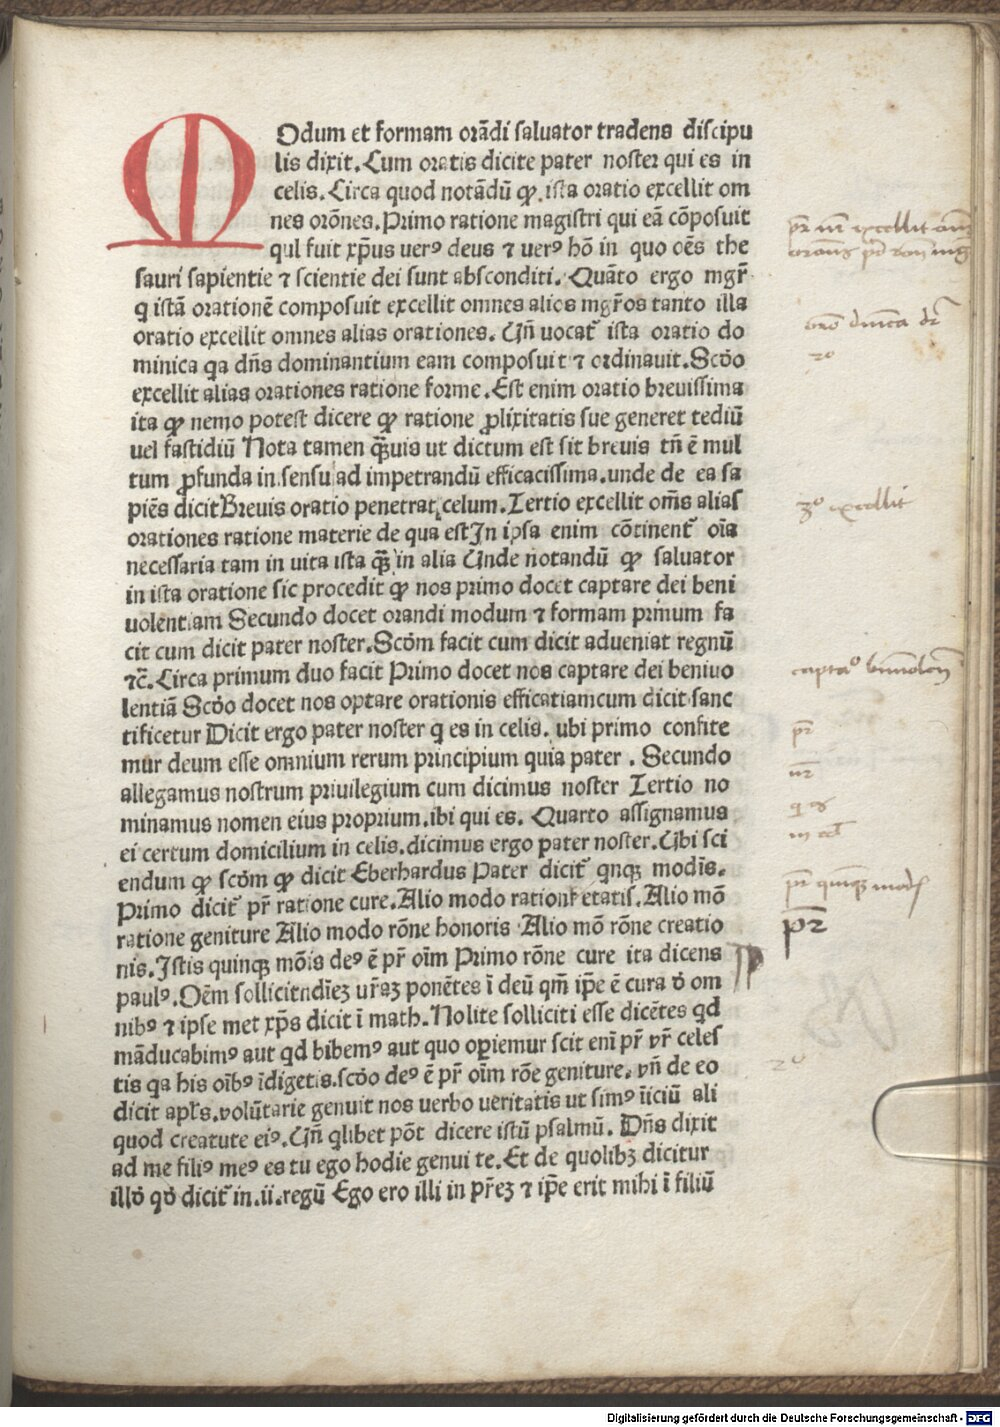 MOdum et formam orādi saluator tradens discipu
lis dixit. Cum oratis dicite pater noster qui es in
celis. Circa quod notādū ꝙ ista oratio excellit om
nes orōnes. Primo ratione magistri qui eā cōposuit
qui fuit xp̄us verꝰ deus ⁊ verꝰ hō in quo oēs the
sauri sapientie ⁊ scientie dei sunt absconditi. Quāto ergo mgr̄
q istā orationē composuit excellit omnes alios mgr̄os tanto illa
oratio excellit omnes alias orationes. Un̄ uocat᷑ ista oratio do
minica qa dn̄s dominantium eam composuit ⁊ ordinauit. Scd̄o
excellit alias orationes ratione forme. Est enim oratio breuissima
ita ꝙ nemo potest dicere ꝙ ratione ꝓlixitatis sue generet tediū
uel fastidiū Nota tamen q̄uis ut dictum est sit breuis tn̄ ē mul
tum ꝓfunda in sensu ad impetrandū efficacissima. unde de ea sa
piēs dicit Breuis oratio penetrat celum. Tertio excellit om̄s alias
orationes ratione materie de qua est In ipsa enim cōtinent᷑ oīa
necessaria tam in uita ista q̄ in alia Unde notandū ꝙ saluator
in ista oratione sic procedit ꝙ nos primo docet captare dei beni
uolentiam Secundo docet orandi modum ⁊ formam primum fa
cit cum dicit pater noster. Scd̄m facit cum dicit adueniat regnū
⁊c̄. Circa primum duo facit Primo docet nos captare dei beniuo
lentiā Scd̄o docet nos optare orationis efficatiam cum dicit sanc
tificetur Dicit ergo pater noster q es in celis. ubi primo confite
mur deum esse omnium rerum principium quia pater. Secundo
allegamus nostrum priuilegium cum dicimus noster Tertio no
minamus nomen eius proprium. ibi qui es. Quarto assignamus
ei certum domicilium in celis. dicimus ergo pater noster. Ubi sci
endum ꝙ scd̄m ꝙ dicit Eberhardus Pater dicit᷑ qnqꝫ modīs.
Primo dicit᷑ pr̄ ratione cure. Alio modo ratione etatis. Alio mō
ratione geniture Alio modo rōne honoris Alio mō rōne creatio
nis. Istis quinqꝫ mōis deꝰ ē pr̄ oīm Primo rōne cure ita dicens
paulꝰ. Oēm sollicitudīeꝫ ur̄aꝫ ponētes ī deū qm̄ ip̄e ē cura d̄ om
nibꝰ ⁊ ipse met xp̄s dicit ī math. Nolite solliciti esse dicētes qd
māducabimꝰ aut qd bibemꝰ aut quo oꝑiemur scit enī pr̄ vr̄ celes
tis qa his oībꝰ īdigetis. scd̄o deꝰ ē pr̄ oīm rōe geniture. vn̄ de eo
dicit apl̄s. volūtarie genuit nos uerbo ueritatis ut simꝰ īiciū ali
quod creature eiꝰ. Un̄ qlibet pōt dicere istū psalmū. Dn̄s dixit
ad me filiꝰ meꝰ es tu ego hodie genui te. Et de quolibꝫ dicitur
illd̄ qd̄ dicit᷑ in .ii. regū Ego ero illi in pr̄eꝫ ⁊ ip̄e erit mihi ī filiū
3º excellit
pr̄
nr̄
pr̄
2º
Digitalisierung gefördert durch die Deutsche Forschungsgemeinschaft - DFG